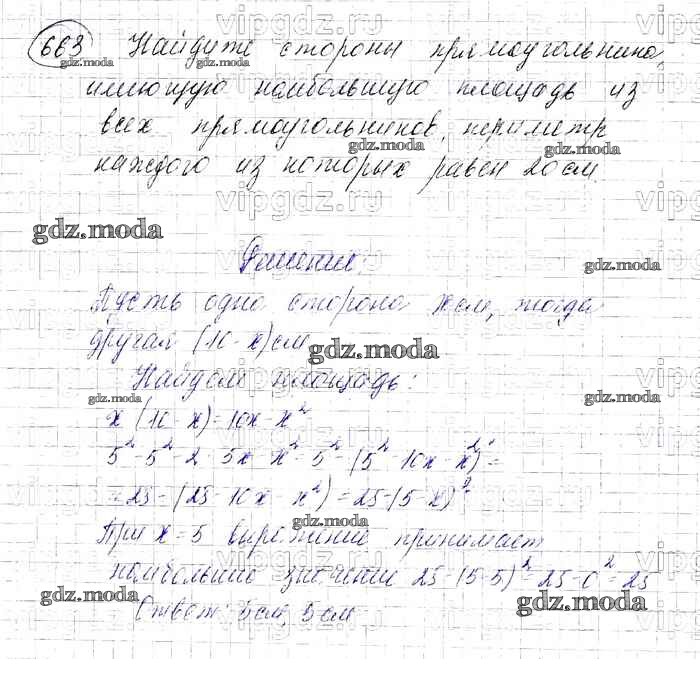 663 Найдите стороны прямоугольника,
имеющую наибольшую площадь из
всех прямоугольников, периметр
каждого из которых равен 20 см.
gdz.moda
Решение:
Пусть одна сторона x см, тогда
другая (10-x) см
gdz.moda
Найдем площадь:
x(10-x)=10x-x²
5²-5² 2 5x x²-5²-(5²-10x x²)=
=25-(25-10x x²)=25-(5-x)²
При x=5 выражение принимает
наибольшие значение 25-(5-5)²=25-0²=25
Ответ: 5 см, 5 см
gdz.moda
vipgdz.ru